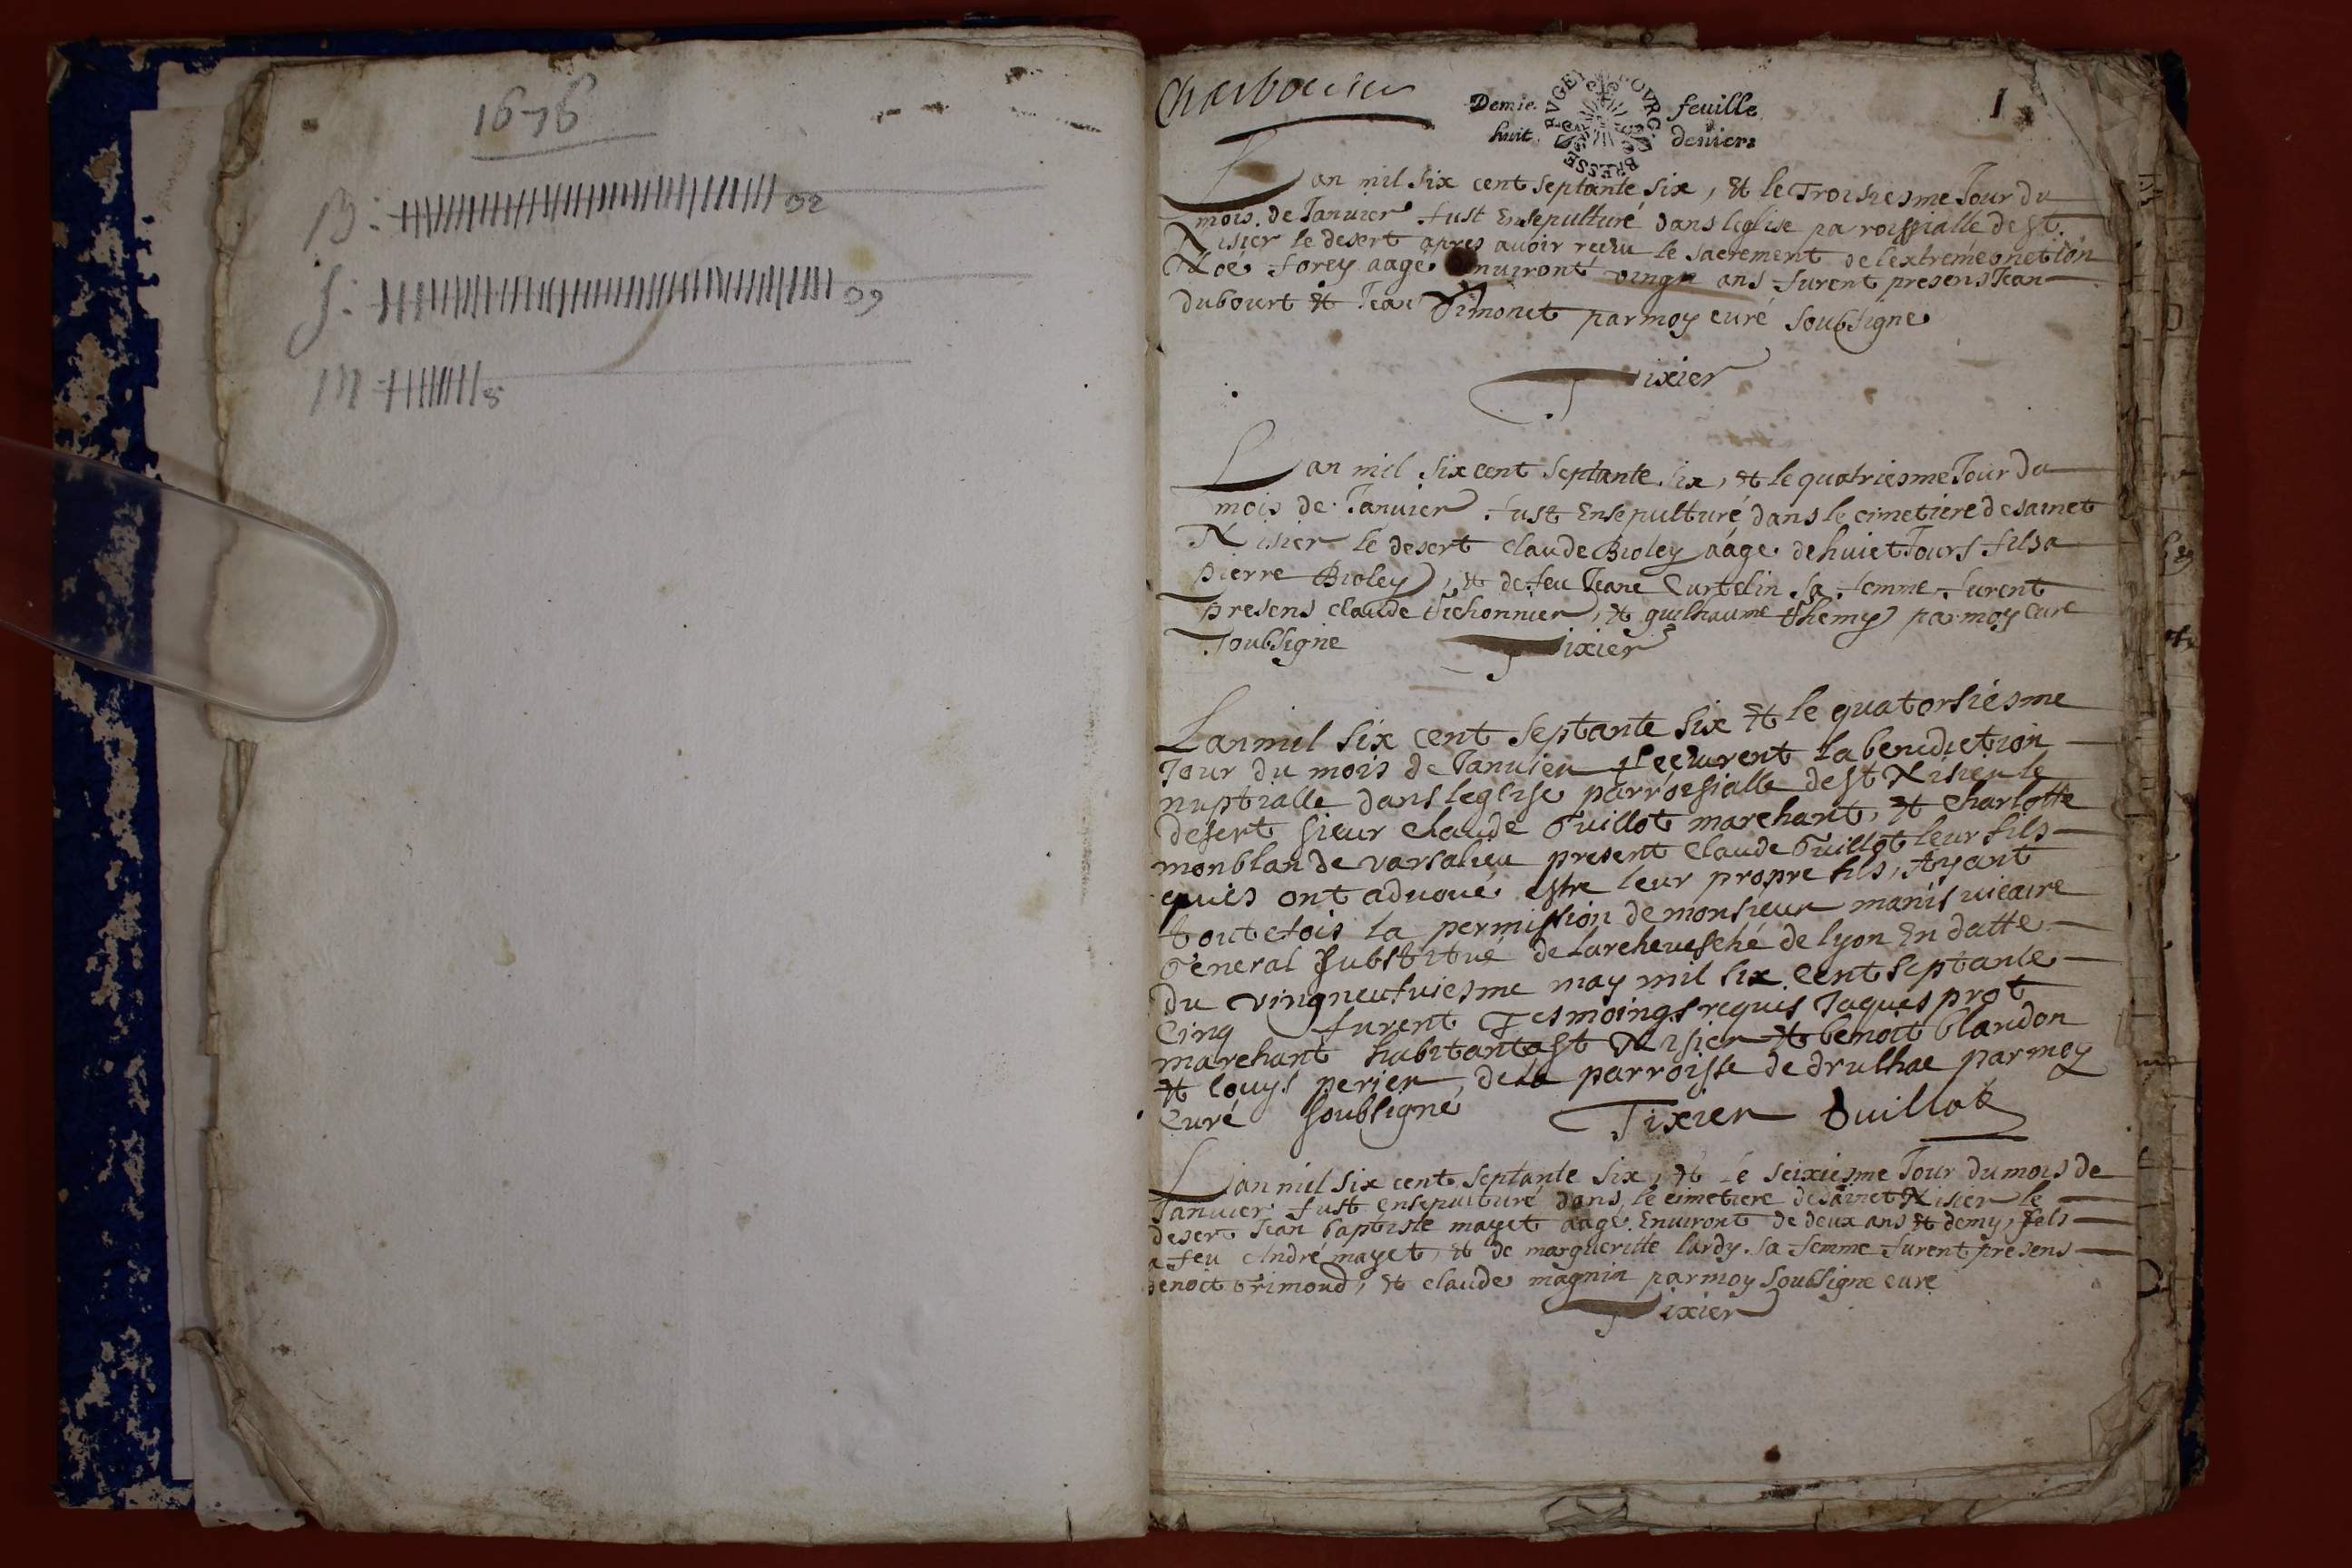 1676
B:
S:
M
8
Demie feuille
huit deniers
BVGEY BOVRG BRESSE
1
Lan mil six cent septante six, et le Troisiesme Jour du
mois de Januier fust Ensepulturé dans leglise paroissialle de st.
Nisier le desert apres auoir recêu le sacrement de lextrémeonction
Noé forey aagé enuiront vingn ans furent presens Jean
dubourt et Jean parmoy curé soubsigne
Tixier
Lan mil six cent septante six, et le quatriesme Jour du
mois de Januier fust Ensepulturé dans le cimetiere de sainct
Nisier le desert claude Bioley aage de huict Jours fils a
pierre Bioley, et de feu Jeane Curtelin sa femme furent
presens claude et guilhaume parmoy cure
soubsigne Tixier
Lan mil six cent septante six et le quatorsiésme
Jour du mois de Januier Recêurent la benediction
nuptialle dans leglise parroissialle de st Nisier le
desert sieur claude Guillot marchant, et charlotte
monblan de varsalieu present claude Guillot leur fils
quils ont aduoué estre leur propre fils, Ayant
toutefois la permission de monsieur manis uicaire
General substitué de larcheuesché de lyon En datte
du vingneufuiesme may mil six Cent septante
Cinq furent Tesmoings requis Jaques prot
marchant habitant a st Nisier et benoit blandon
et louys perier, de la parroisse de drulhae parmoy
Curé soubsigné Tixier Guillot
Lan mil six cent septante six, et le seixiesme Jour du mois de
Januier fust ensepulturé dans le cimetiere de sainct Nisier le
desert Jean baptiste mayet aagé Enuiront de deux ans et demy, fils
a feu André mayet, et de margueritte lardy sa femme furent presens
benoit Grimoud, et claude magnin parmoy soubsigne cure
Tixier